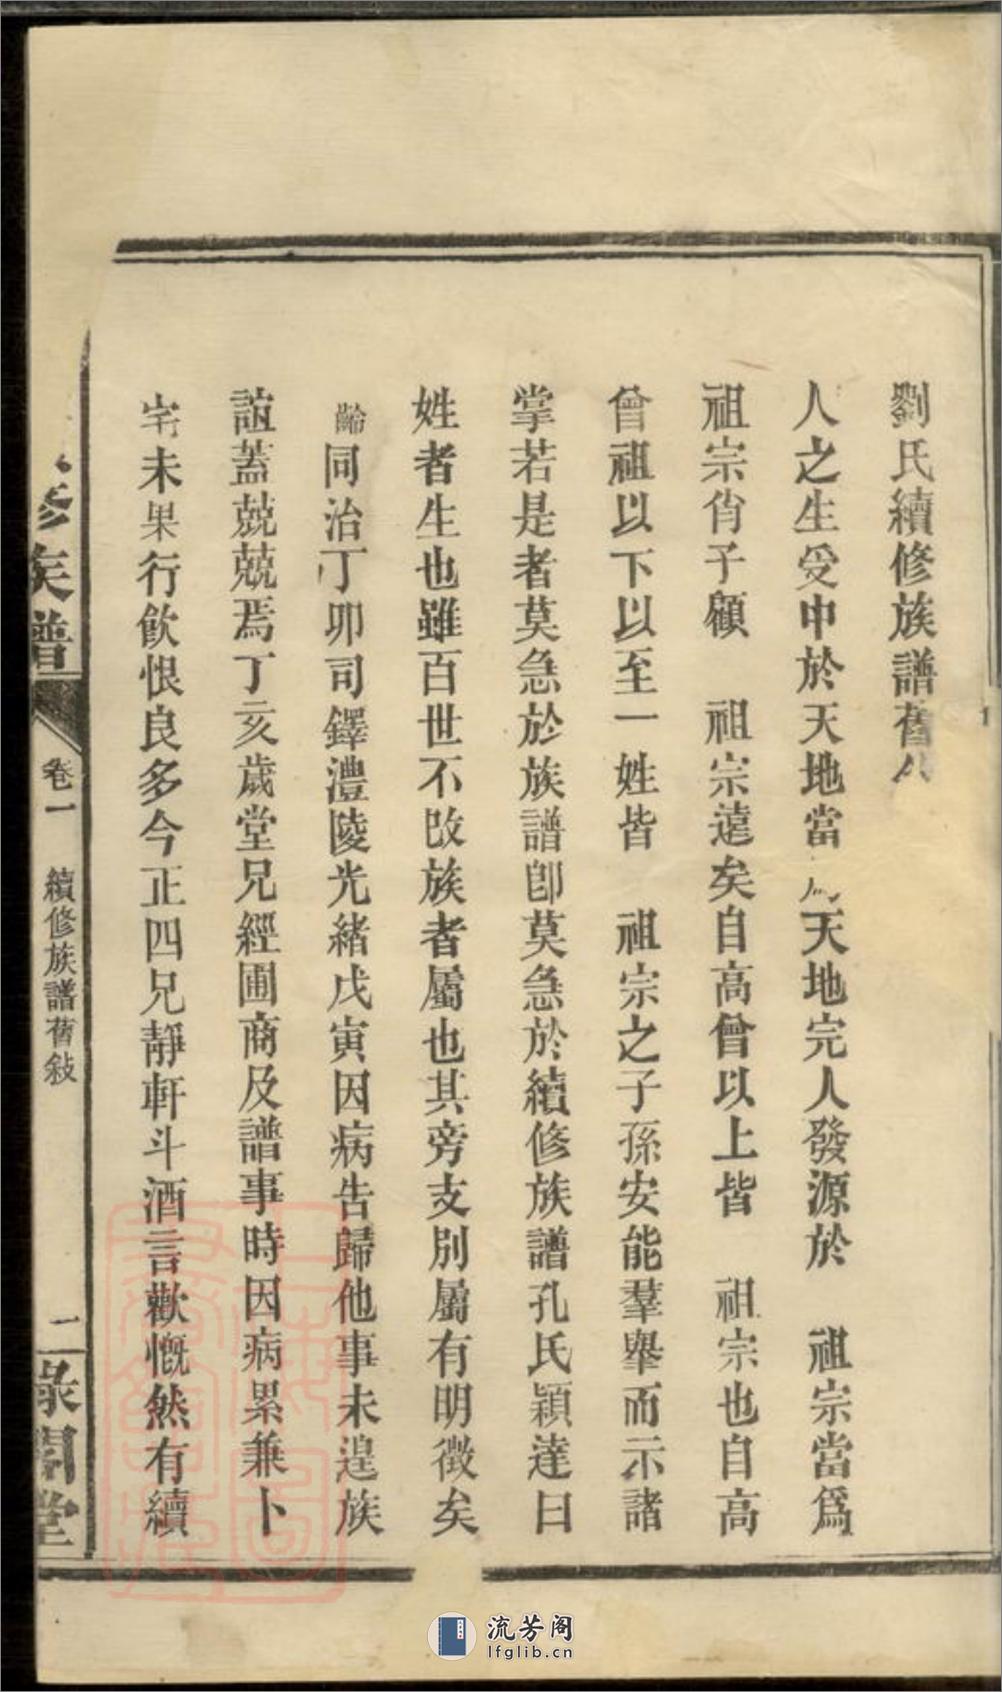 劉氏續修族譜舊
人之生受中於天地當爲天地完人發源於　祖宗當爲
祖宗肖子顧　祖宗遠矣自高曾以上皆　祖宗也自高
曾祖以下以至一姓皆　祖宗之子孫安能羣舉而示諸
掌若是者莫急於族譜卽莫急於續修族譜孔氏穎達曰
姓者生也雖百世不改族者屬也其旁支別屬有明徵矣
齡同治丁卯司鐸澧陵光緒戊寅因病告歸他事未遑族
誼蓋兢兢焉丁亥歲堂兄經圃商及譜事時因病累兼卜
宅未果行飮恨良多今正四兄靜軒斗酒言歡慨然有續
修族譜
卷一
續修族譜舊敍
二
祿閣堂
流芳阁
lfglib.cn